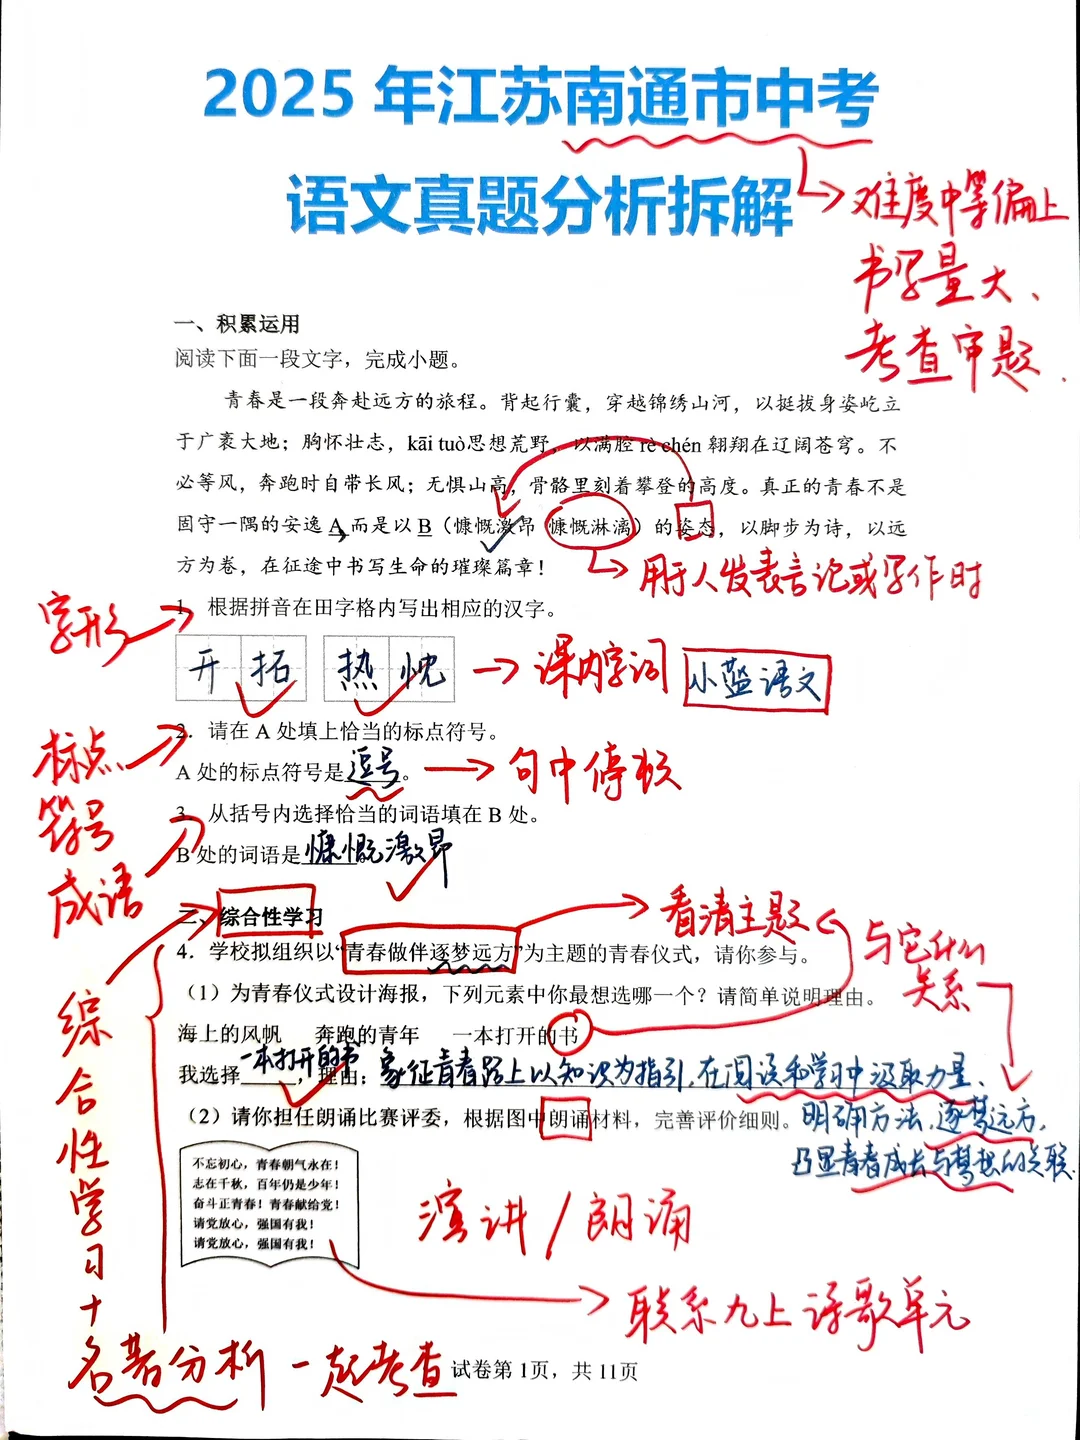 2025 年江苏南通市中考
语文真题分析拆解
难度中等偏上
书写量大、
考查审题.
一、积累运用
阅读下面一段文字，完成小题。
青春是一段奔赴远方的旅程。背起行囊，穿越锦绣山河，以挺拔身姿屹立
于广袤大地；胸怀壮志，kāi tuò思想荒野，以满腔 rè chén 翱翔在辽阔苍穹。不
必等风，奔跑时自带长风；无惧山高，骨骼里刻着攀登的高度。真正的青春不是
固守一隅的安逸 A，而是以 B（慷慨激昂 慷慨淋漓）的姿态，以脚步为诗，以远
方为卷，在征途中书写生命的璀璨篇章！
用于人发表言论或写作时
字形
1. 根据拼音在田字格内写出相应的汉字。
开拓 热忱
课内字词
小蓝语文
标点符号
2. 请在 A 处填上恰当的标点符号。
A 处的标点符号是逗号。
句中停顿
成语
3. 从括号内选择恰当的词语填在 B 处。
B 处的词语是慷慨激昂
二、综合性学习
看清主题
4. 学校拟组织以“青春做伴逐梦远方”为主题的青春仪式，请你参与。
与它什么
关系
（1）为青春仪式设计海报，下列元素中你最想选哪一个？请简单说明理由。
海上的风帆 奔跑的青年 一本打开的书
我选择一本打开的书，理由：象征青春路上以知识为指引，在阅读和学习中汲取力量、
明确方法，逐梦远方，
凸显青春成长与梦想的关联.
（2）请你担任朗诵比赛评委，根据图中朗诵材料，完善评价细则。
不忘初心，青春朝气永在！
志在千秋，百年仍是少年！
奋斗正青春！青春献给党！
请党放心，强国有我！
请党放心，强国有我！
演讲/朗诵
联系九上诗歌单元
综合性学习+
名著分析一起考查
试卷第 1页，共 11页